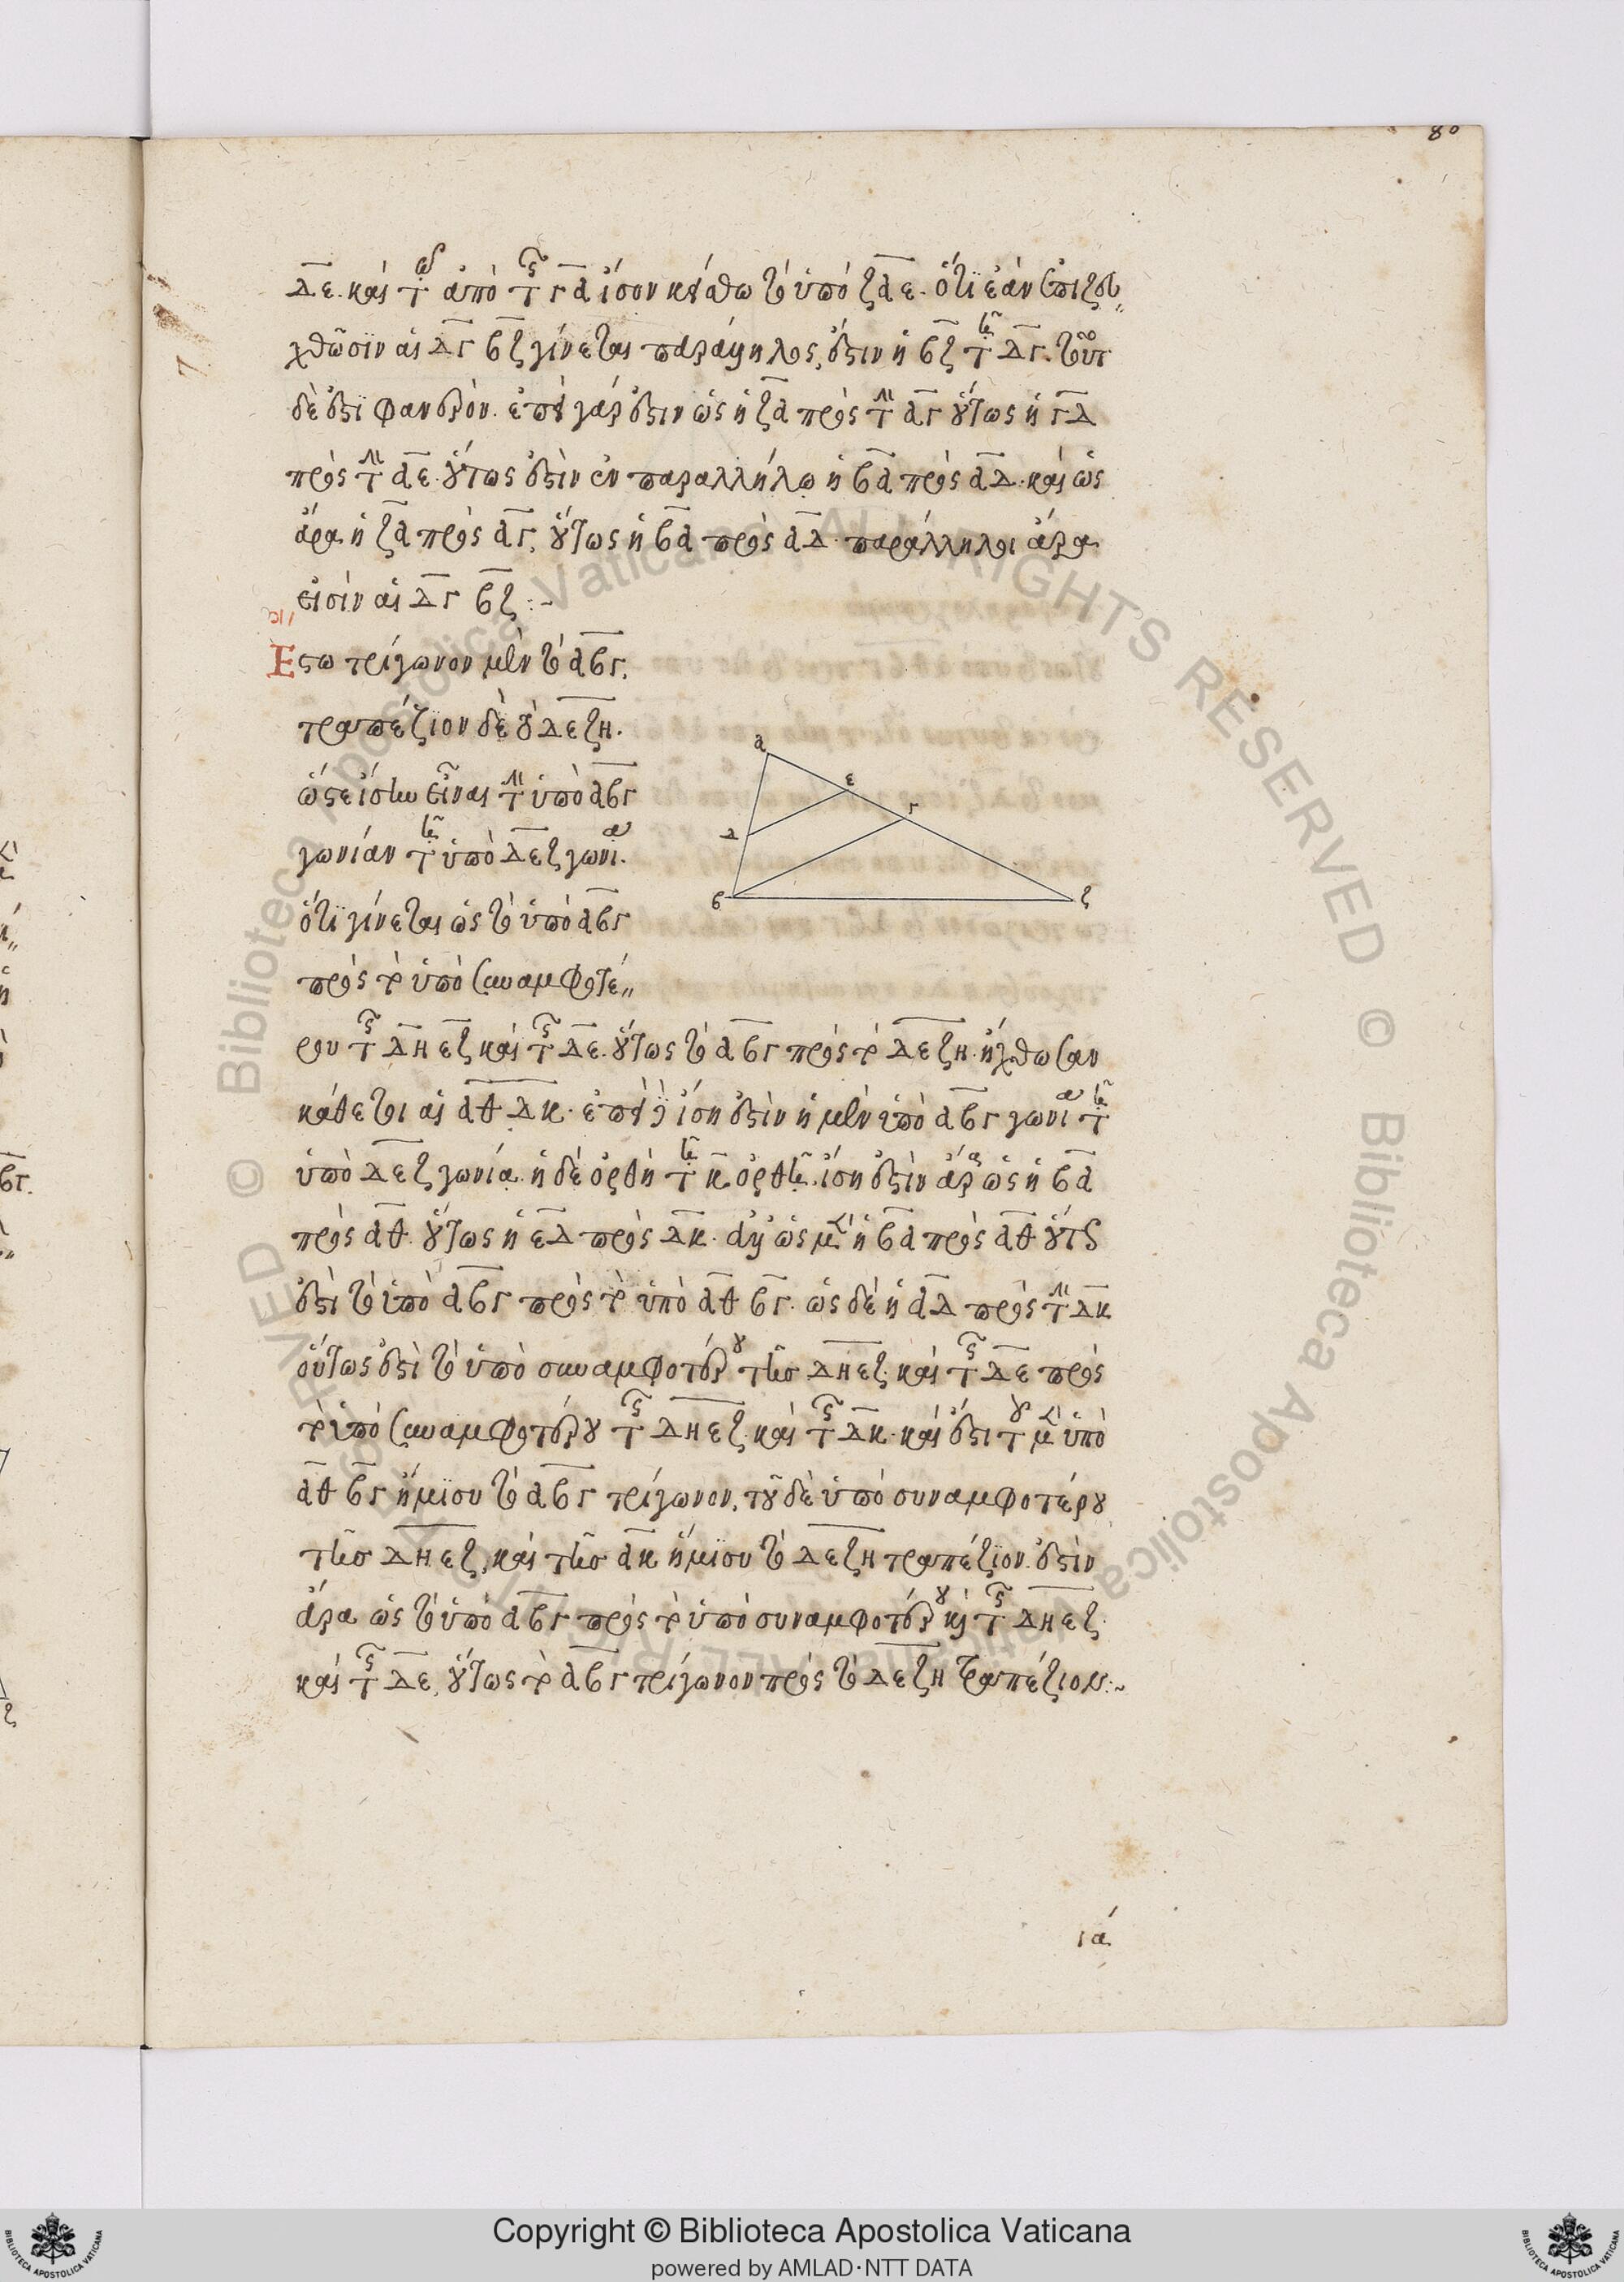 80
ΔΕ. καὶ τῷ ἀπὸ τῆς ΓΑ ἴσον κείσθω τὸ ὑπὸ ΖΑΕ. ὅτι ἐὰν ἐπιζευ〃
χθῶσιν αἱ ΔΓ ΒΖ γίνεται παράλληλος, ἐστιν ἡ ΒΖ τῇ ΔΓ. τοῦτο
δὲ ἐστὶ φανερόν. ἐπεὶ γάρ ἐστιν ὡς ἡ ΖΑ πρὸς τὴν ΑΓ οὕτως ἡ ΓΔ
πρὸς τὴν ΑΕ. οὕτως ἐστὶν ἐν παραλλήλῳ ἡ ΒΑ πρὸς ΑΔ. καὶ ὡς
ἄρα ἡ ΖΑ πρὸς ΑΓ, οὕτως ἡ ΒΑ πρὸς ΑΔ. παράλληλοι ἄρα
εἰσὶν αἱ ΔΓ ΒΖ :~
Ἔστω τρίγωνον μὲν τὸ ΑΒΓ,
τραπέζιον δὲ τὸ ΔΕΖΗ.
ὥστε εἶναι τὴν ὑπὸ ΑΒΓ
γωνίαν τῇ ὑπὸ ΔΕΖ γωνίᾳ.
ὅτι γίνεται ὡς τὸ ὑπὸ ΑΒΓ
πρὸς τὸ ὑπὸ συναμφοτέ〃
ρου τῆς ΔΗ ΕΖ καὶ τῆς ΔΕ. οὕτως τὸ ΑΒΓ πρὸς τὸ ΔΕΖΗ. ἤχθωσαν
κάθετοι αἱ ΑΘ ΔΚ. ἐπεὶ δὲ ἴση ἐστὶν ἡ μὲν ὑπὸ ΑΒΓ γωνία τῇ
ὑπὸ ΔΕΖ γωνίᾳ. ἡ δὲ ὀρθὴ τῇ Κ ὀρθῇ. ἴση ἐστὶν ἄρα ὡς ἡ ΒΑ
πρὸς ΑΘ. οὕτως ἡ ΕΔ πρὸς ΔΚ. ἀλλ' ὡς μὲν ἡ ΒΑ πρὸς ΑΘ οὕτως
ἐστὶ τὸ ὑπὸ ΑΒΓ πρὸς τὸ ὑπὸ ΑΘ ΒΓ. ὡς δὲ ἡ ΑΔ πρὸς τὴν ΔΚ
οὕτως ἐστὶ τὸ ὑπὸ συναμφοτέρου τῆς ΔΗ ΕΖ. καὶ τῆς ΔΕ πρὸς
τὸ ὑπὸ συναμφοτέρου τῆς ΔΗ ΕΖ. καὶ τῆς ΔΚ. καὶ ἔστι τοῦ μὲν ὑπὸ
ΑΘ ΒΓ ἥμισυ τὸ ΑΒΓ τρίγωνον, τοῦ δὲ ὑπὸ συναμφοτέρου
τῆς ΔΗ ΕΖ, καὶ τῆς ΑΚ ἥμισυ τὸ ΔΕΖΗ τραπέζιον. ἐστὶν
ἄρα ὡς τὸ ὑπὸ ΑΒΓ πρὸς τὸ ὑπὸ συναμφοτέρου καὶ τῆς ΔΗ ΕΖ.
καὶ τῆς ΔΕ, οὕτως τὸ ΑΒΓ τρίγωνον πρὸς τὸ ΔΕΖΗ τραπέζιον :~
α
ε
γ
δ
β
ζ
ια
Copyright © Biblioteca Apostolica Vaticana
powered by AMLAD·NTT DATA